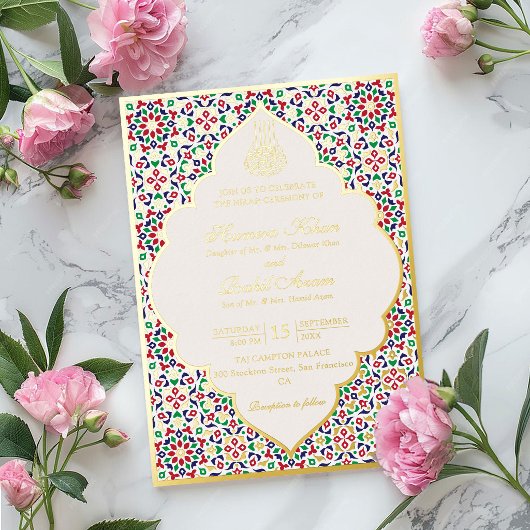 JOIN US TO CELEBRATE
THE NIKAH CEREMONY OF
Humera Khan
Daughter of Mr. & Mrs. Dilawar Khan
and
Rahil Azam
Son of Mr. & Mrs. Hamid Azam
SATURDAY
6:00 PM
15
SEPTEMBER
20XX
TAJ CAMPTON PALACE
300 Stockton Street, San Francisco
CA
Reception to follow